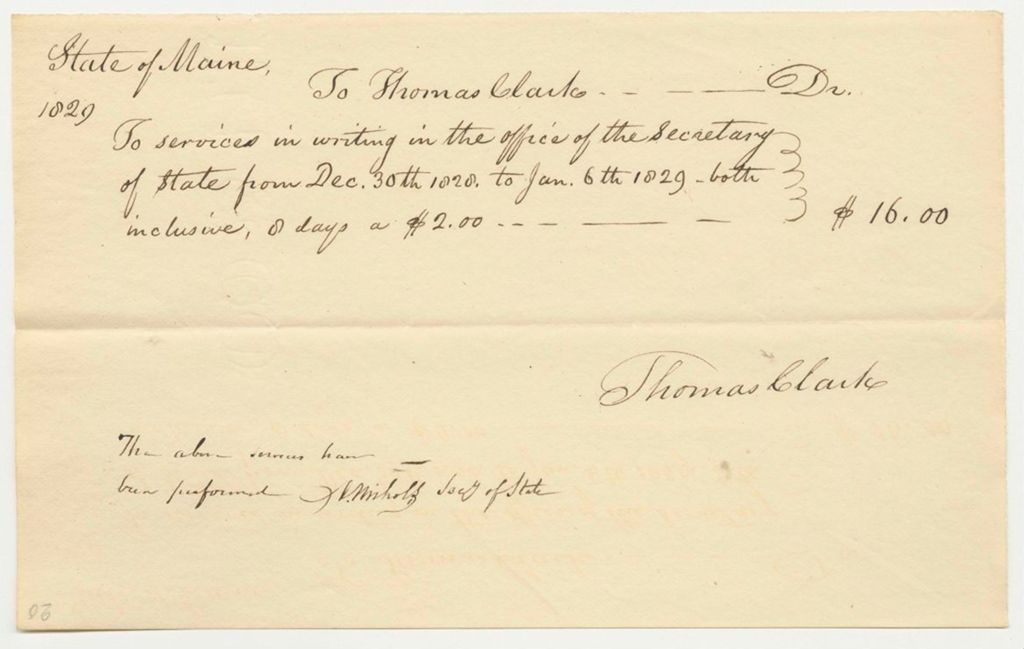 State of Maine,
To Thomas Clark - - - — — Dr.
1829
To services in writing in the office of the Secretary
of State from Dec. 30th 1828. to Jan. 6th 1829 - both
inclusive, 8 days a $2.00 - - - — —
$ 16.00
Thomas Clark
The above services have
been performed Nichols Secy of State